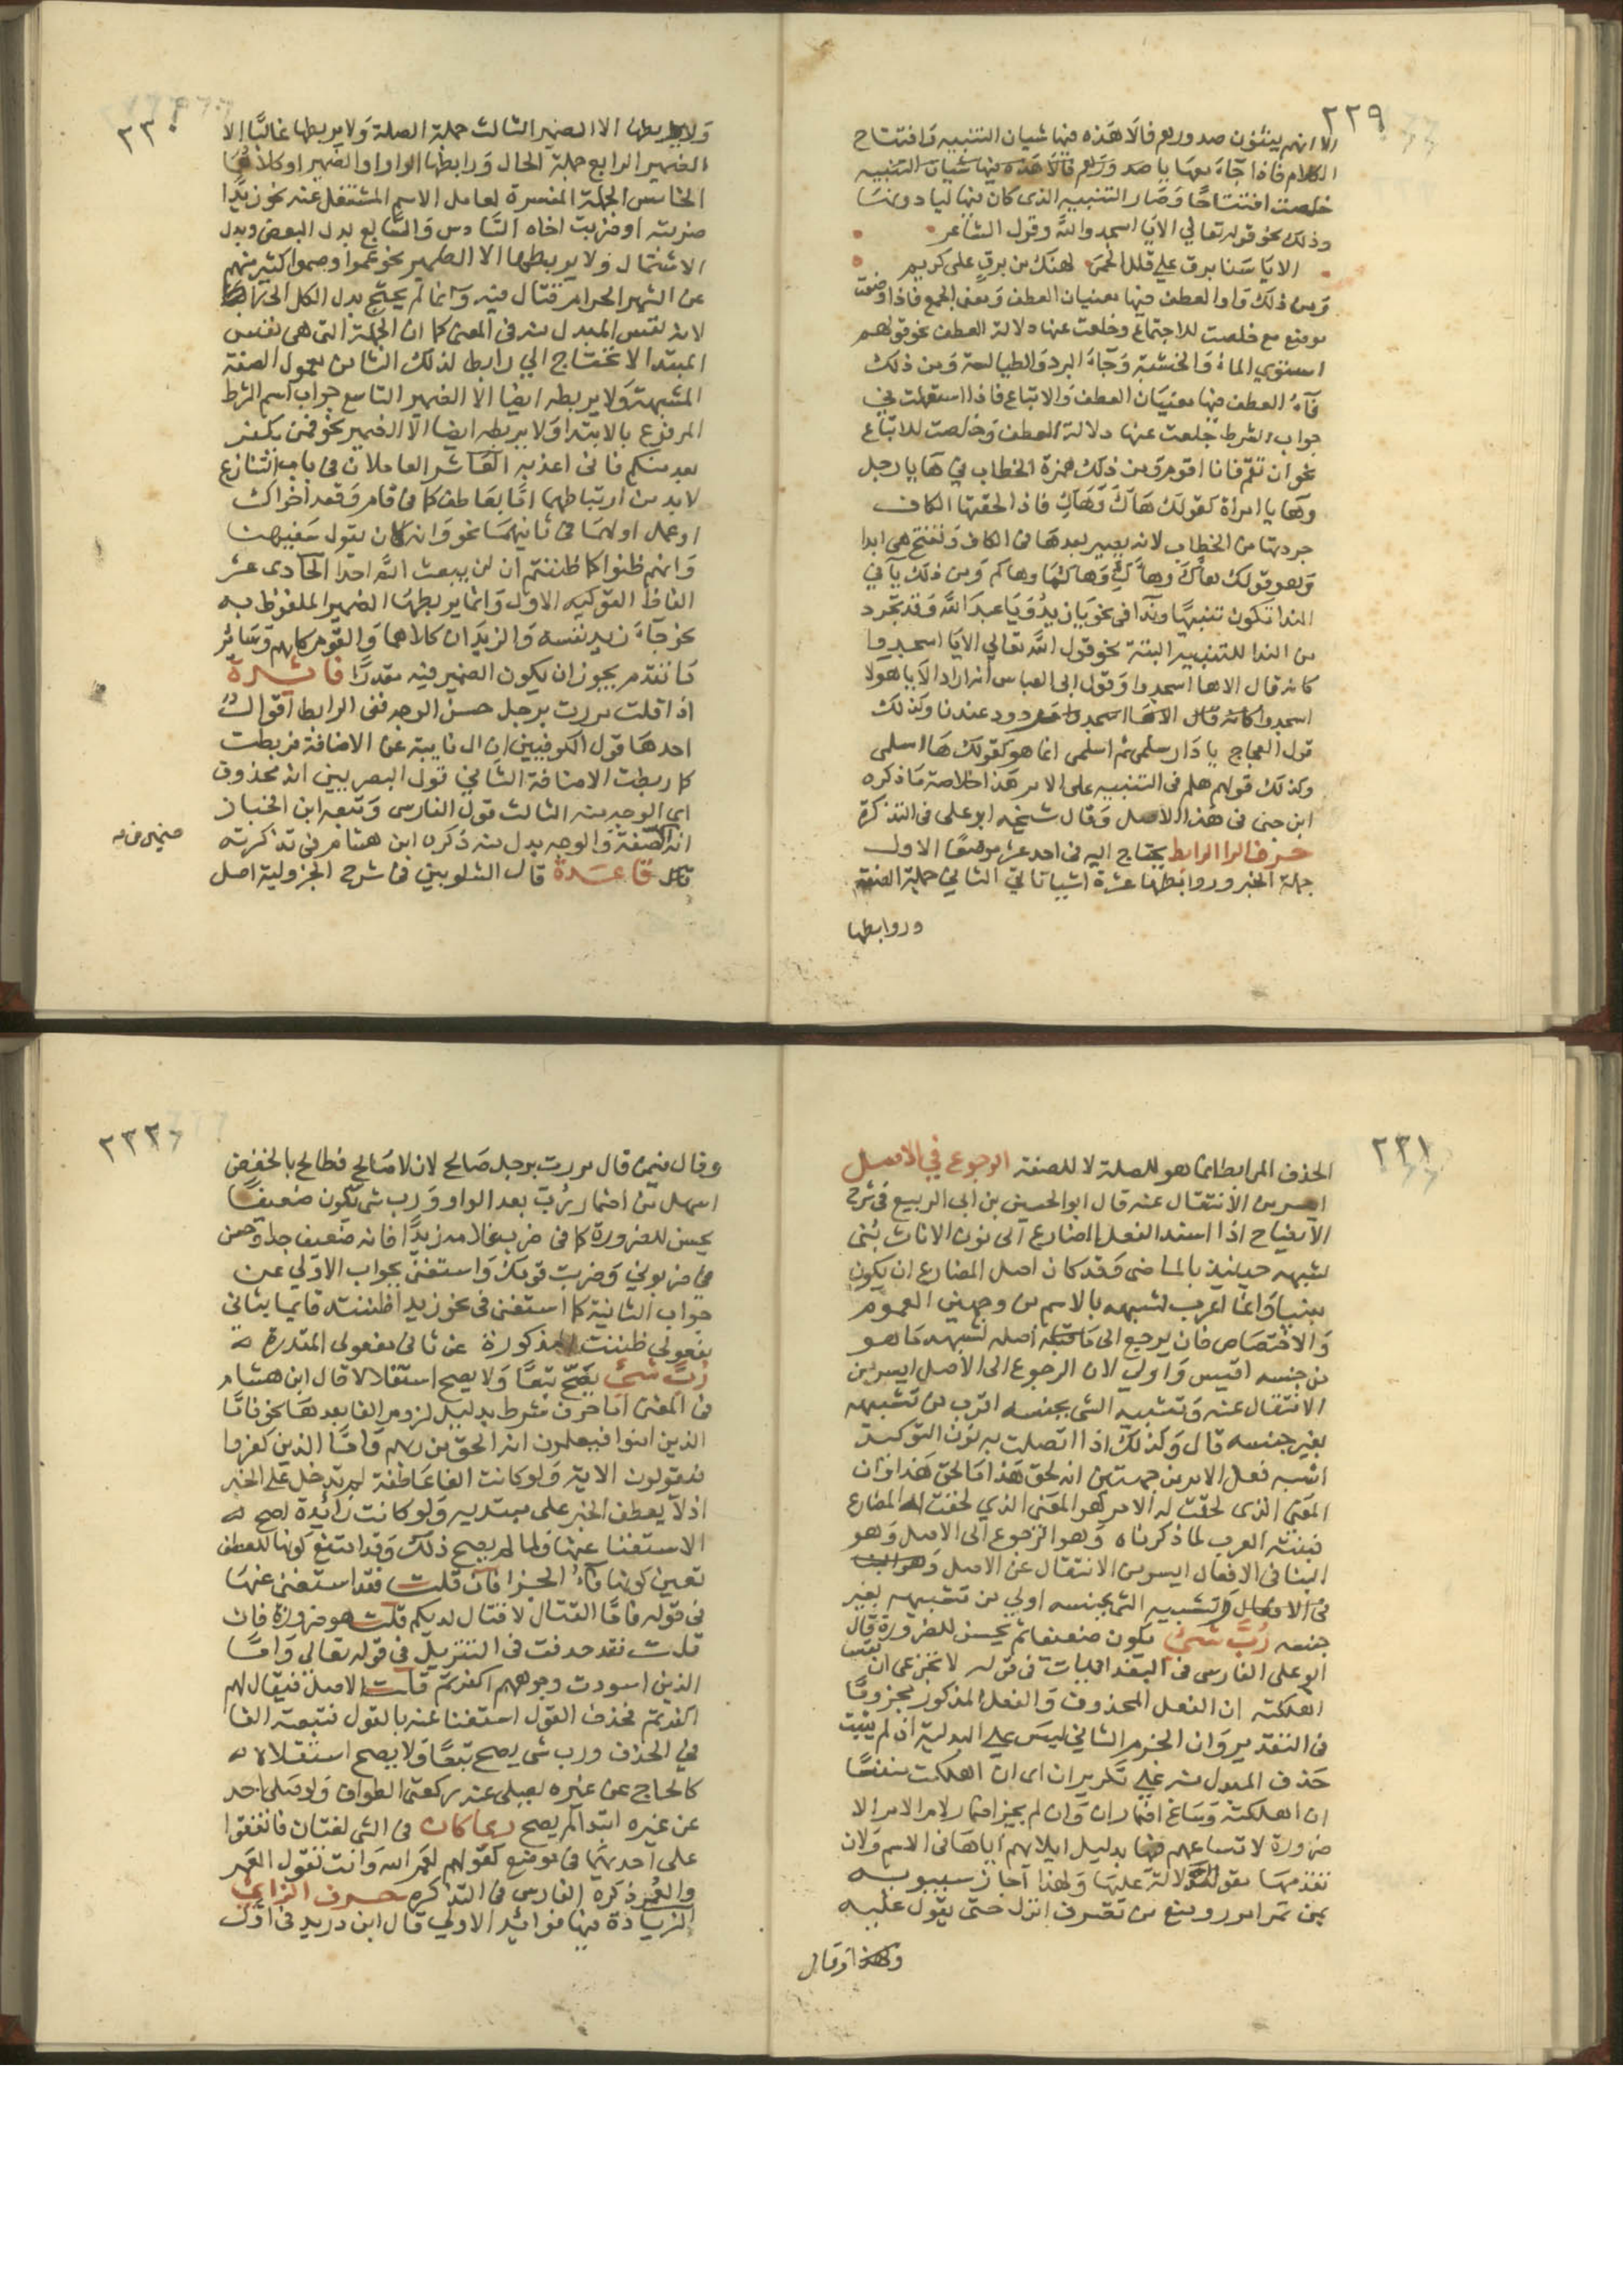 ٢٢٩
الا انهم ينئون صدوربع فالا هذه فيها شيان التنبيه وافتتاح
الكلام فاذا جاءت معها يا صدوربع فالا هذه فيها شيان التنبيه
خلصت افتتاحا وصار التنبيه الذي كان فيها ليا دونها
وذلك نحو قوله تعالي الا يا اسجدوا لله وقول الشاعر
الا يا سنا برق علي قلل الحمى لهنك من برق على كريم
ومن ذلك واو العطف فيها معنيان العطف ومعنى الجمع فاذا وضعت
موضع مع خلصت للاجتماع وخلعت عنها دلالة العطف نحو قولهم
استوي الماء والخشبة وجاء البرد والطيالسة ومن ذلك
فاء العطف فيها معنيان العطف والاتباع فاذا استعملت في
جواب الشرط خلعت عنها دلالة العطف وخلصت للاتباع
نحو ان تقم فانا اقوم ومن ذلك همزة الخطاب في هاء يا رجل
وهاء يا امراة كقولك هاك وهاك فاذا الحقتها الكاف
جردتها من الخطاب لانه يصير بعدها في الكاف وتفتح هي ابدا
وهو قولك هاءك وهاءك وهاءكما وهاءكم ومن ذلك يا في
الندا تكون تنبيها وندا في نحو يا زيد ويا عبد الله وقد تجرد
من الندا للتنبيه البتة نحو قول الله تعالي الا يا اسجدوا
كانه قال الا ها اسجدوا وقول ابي العباس انه اراد الا يا هولا
اسجدوا مردود عندنا وكذلك
قول العجاج يا دار سلمى ثم اسلمى انما هو كقولك ها اسلمى
وكذلك قولهم هلم في التنبيه على الامر هذا خلاصة ما ذكره
ابن جنى في هذا الاصل وقال شيخه ابو على في التذكرة
حرف الرا الرابط يحتاج اليه في احد عشر موضعا الاول
جملة الخبر وروابطها عشرة اشيا تاتي الثاني جملة الصفة
وروابطها
٢٣٠
ولا يربطها الا الضمير الثالث جملة الصلة ولا يربطها غالبا الا
الضمير الرابع جملة الحال ورابطها الواو او الضمير او كلاهما
الخامس الجملة المفسرة لعامل الاسم المشتغل عنه نحو زيدا
ضربته او ضربت اخاه السادس والسابع بدل البعض وبدل
الاشتمال ولا يربطهما الا الضمير نحو عموا وصموا كثير منهم
عن الشهر الحرام قتال فيه وانما لم يحتج بدل الكل الى رابط
لانه نفس المبدل منه في المعنى كما ان الجملة التى هي نفس
المبتدا لا تحتاج الي رابط لذلك الثامن معمول الصفة
المشبهة ولا يربطه ايضا الا الضمير التاسع جواب اسم الشرط
المرفوع بالابتدا ولا يربطه ايضا الا الضمير نحو فمن يكفر
بعد منكم فاني اعذبه العاشر العاملان في باب التنازع
لا بد من ارتباطهما اما بعاطف كما في قام وقعد اخواك
او عمل اولهما في ثانيهما نحو وانه كان يقول سفيهنا
وانهم ظنوا كما ظننتم ان لن يبعث الله احدا الحادى عشر
الفاظ التوكيد الاول وانما يربطها الضمير الملفوظ به
نحو جاء زيد نفسه والزيدان كلاهما والقوم كلهم وسائر
ما تقدم يجوز ان يكون الضمير فيه مقدرا فائدة
اذا قلت مررت برجل حسن الوجه ففي الرابط اقوال
احدها قول الكوفيين ان ال نايبة عن الاضافة فربطت
كما ربطت الاضافة الثاني قول البصريين انه محذوف
اي الوجه منه الثالث قول الفارسي وتبعه ابن الخباز
انه الصفة والوجه بدل منه ذكره ابن هشام في تذكرته
قاعدة قال الشلوبين في شرح الجزولية اصل
٢٣١
الحذف الرابط انما هو للصلة لا للصفة الرجوع في الاصل
ايسر من الانتقال عنه قال ابو الحسين بن ابي الربيع في شرح
الايضاح اذا اسند الفعل المضارع الى نون الاناث بنى
لشبهه حينئذ بالماضى وقد كان اصل المضارع ان يكون
مبنيا وانما اعرب لشبهه بالاسم من وجهين العموم
والاختصاص فان يرجع الى اصله لشبهه ما هو
من جنسه اقيس واولي لان الرجوع الى الاصل ايسر من
الانتقال عنه وتشبيه الشي بجنسه اقرب من تشبيهه
بغير جنسه قال وكذلك اذا اتصلت به نون التوكيد
اشبه فعل الامر من جهتين انه لحق هذا ما لحق هذا وان
المعنى الذى لحقت له الامر هو المعنى الذي لحقت له المضارع
فبنته العرب لما ذكرناه وهو الرجوع الى الاصل وهو
البنا في الافعال ايسر من الانتقال عن الاصل
وتشبيه الشي بجنسه اولي من تشبيهه بغير
جنسه رب شي يكون ضعيفا ثم يحسن للضرورة قال
ابو على الفارسي في البغداديات في قوله لا تجزعي ان منفسا
اهلكته ان الفعل المحذوف والفعل المذكور مجزوما
في التقدير وان الجزم الثاني ليس علي البدلية اذ لم يثبت
حذف المبدل منه علي تكرير ان اى ان اهلكت منفسا
ان اهلكته وساغ اضمار ان وان لم يجز اضمار لام الامر الا
ضرورة لاتساعهم فيها بدليل ايلائهم اياها في الاسم ولان
تقدمها مقو للدلالة عليها ولهذا اجاز سيبويه
بمن تمرر امرر ومنع من تضرب انزل حتى يقول عليه
وقال
٢٣٢
وقال فيمن قال مررت برجل صالح لان لا صالح فطالح بالخفض
اسهل من اضمار رب بعد الواو ورب شي يكون ضعيفا
يحسن للضرورة كما في ضرب غلامه زيدا فانه ضعيف جدا وحسن
في ضربوني وضربت قومك واستغنى بجواب الاولي عن
جواب الثانية كما استغنى في نحو زيدا ظننته قايما بثاني
مفعولي ظننت المذكورة عن ثاني مفعولي المقدرة
رب شي يصح تبعا ولا يصح استقلالا قال ابن هشام
في المغنى اما حرف شرط بدليل لزوم الفا بعدها نحو فاما
الذين امنوا فيعلمون انه الحق من ربهم واما الذين كفروا
فيقولون الاية ولو كانت الفا عاطفة لم تدخل على الخبر
اذ لا يعطف الخبر على مبتديه ولو كانت زائدة لصح
الاستغنا عنها ولما لم يصح ذلك وقد امتنع كونها للعطف
تعين كونها فاء الجزا فان قلت فقد استغنى عنها
في قوله فاما القتال لا قتال لديكم قلت هو ضرورة فان
قلت فقد حذفت في التنزيل في قوله تعالى واما
الذين اسودت وجوههم اكفرتم قلت الاصل فيقال لهم
اكفرتم فحذف القول استغنا عنه بالقول فتبعته الفا
في الحذف ورب شي يصح تبعا ولا يصح استقلالا
كالحاج عن غيره يصلى عنه ركعتى الطواف ولو صلى احد
عن غيره ابتدا لم يصح ربما كان في الشي لغتان فاتفقوا
على احدهما في موضع كقولهم لعمر الله وانت تقول العمر
والعمر ذكره الفارسي في التذكرة حرف الزاي
الزيادة فيها فوائد الاولي قال ابن دريد في اول